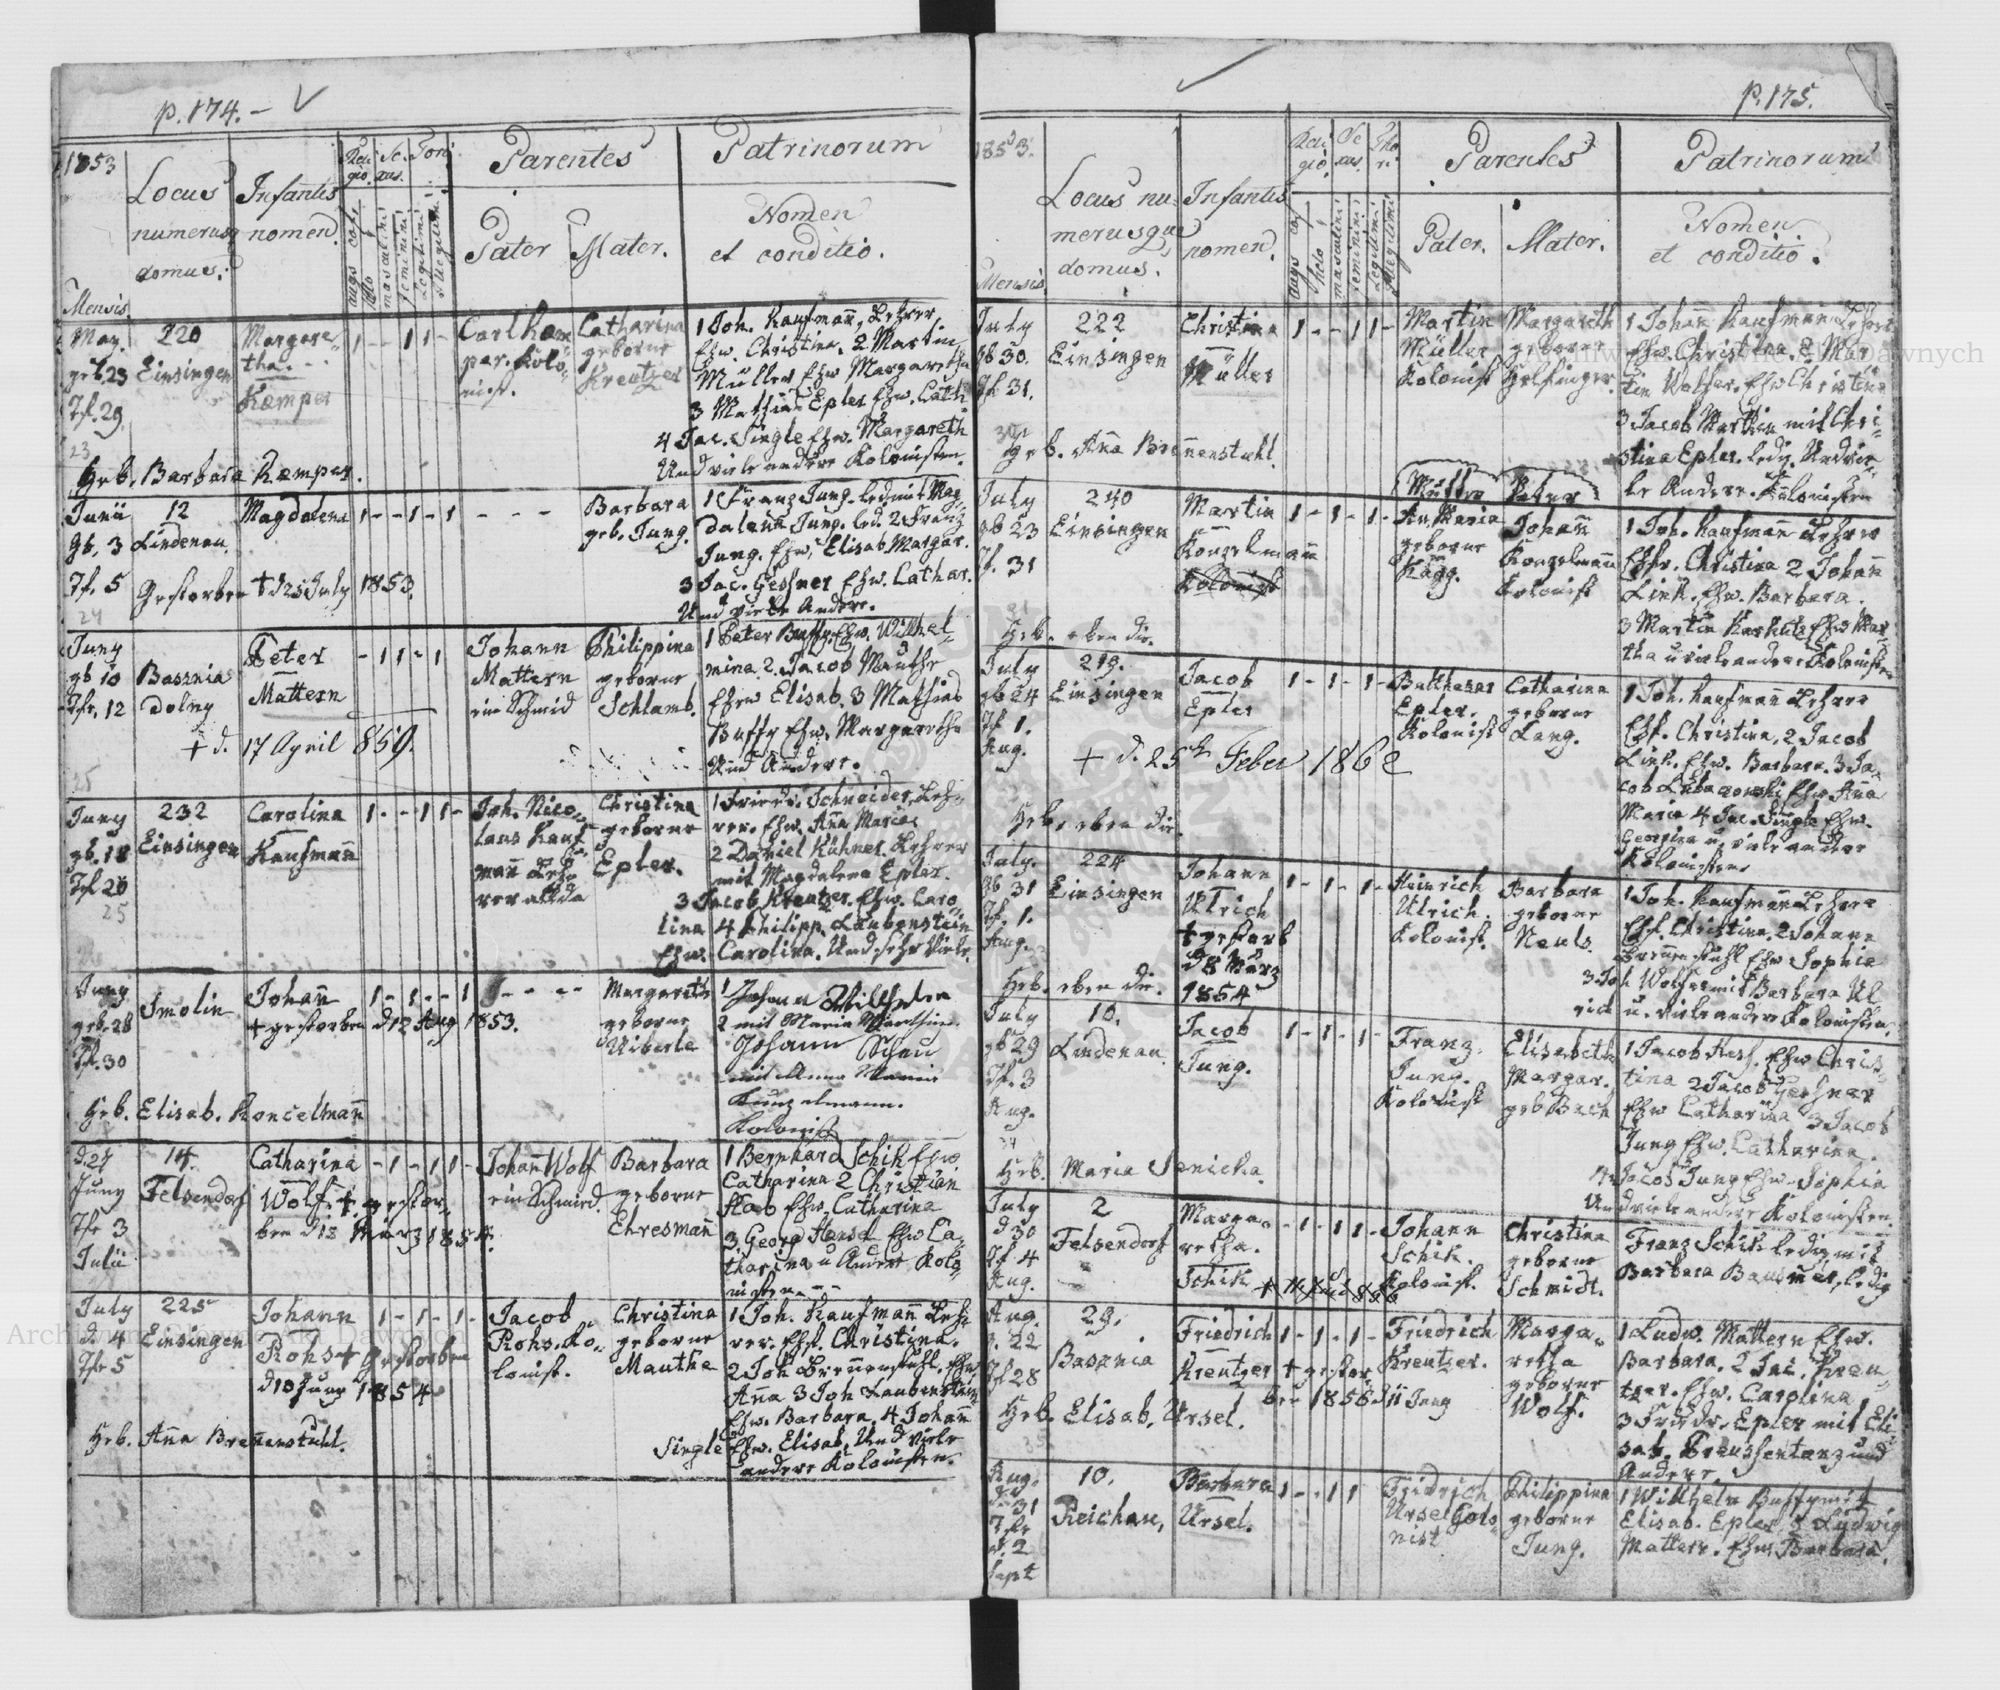 p. 174. -
1853
Locus numerusq domus.
Infantis nomen.
Religio.
Sexus.
Tori
Parentes
Patrinorum
augs conf
masculini
feminini
Legitimi
Illegitimi
Pater
Mater.
Nomen
et conditio.
Mensis.
May.
geb. 23
Tf. 29
220
Einsingen
Margare-
tha.
Kemper
1 - - 1 1 -
Carl Kem
per. Kolo-
nist.
Catharina
geborne
Kreutzer
1 Joh. Kaufmañ, Lehrer,
Ehw. Christina, 2 Martin
Müller Ehw Margaretha
3 Mathias Epler Ehw. Cath
4 Jac. Single Ehw. Margareth
Und viele andere Kolonisten.
23
Heb. Barbara Kemper.
Junii
gb. 3
Tf. 5
12
Lindenau.
Magdalena
1 - - 1 - 1
- - -
Barbara
geb. Jung.
1 Franz Jung. led mit Mag-
dalena Jung. led. 2 Franz
Jung. Ehw. Elisab. Margar.
3 Jac. Gessner Ehw. Cathar.
Und viele Andere.
Gestorben + d 25 July 1853.
24
Juny
gb 10
Tfr. 12
Basznia
Dolny
Peter
Mattern
- 1 1 - 1
Johann
Mattern
ein Schmid
Philippina
geborne
Schlamb.
1 Peter Buffy, Ehw. Wilhel-
mina 2. Jacob Mauthe
Ehw Elisab. 3 Mathias
Buffy Ehw. Margaretha
Und Andere.
+ d. 17 April 859.
25
Juny
gb. 18
Tf 26
25
232
Einsingen
Carolina
Kaufmañ
1 - - 1 1 -
Joh. Nico-
laus Kauf
mañ Leh-
rer allda
Christina
geborne
Epler.
1 Friedr. Schneider, Leh-
rer. Ehw. Aña Maria
2 Daniel Kühner. Lehrer
mit Magdalena Epler.
3 Jacob Kreutzer. Ehw. Caro-
lina 4 Philipp Laubenstein
Ehw. Carolina. Und sehr viele.
Juny
geb. 28
Tf. 30
Smolin
Johañ
+ gestorben d 12 Aug 1853.
1 - 1 - - 1
- - - -
Margareth
geborne
Uiberle
1 Johann Wilhelm
2 mit Maria Marthin
Johann Schau
mit Anna Maria
Kunzelmann.
Kolonist
Heb. Elisab. Koncelmañ
d. 27
Juny
Tfr 3
Julii
14.
Felsendorf
Catharina
Wolf. + gestor-
ben d 18 März 1854.
- 1 - 1 1 -
Johañ Wolf
ein Schmied.
Barbara
geborne
Ehresmañ
1 Bernhard Schik Ehw
Catharina 2 Christian
Hab Ehw. Catharina
3 Georg Hensel Ehw Ca-
tharina u Andere Kolo-
nisten.
July
d. 4
Tfr 5
225
Einsingen
Johann
Rohs + gestorben
d 10 Juny 1854
1 - 1 - 1 -
Jacob
Rohs. Ko-
lonist.
Christina
geborne
Mauthe
1 Joh. Kaufmañ Leh-
rer. Ehf. Christina.
2 Joh Breñenstuhl, Ehw
Aña 3 Joh Laubenstein
Ehw. Barbara. 4 Johañ
Single Ehw. Elisab. Und viele
andere Kolonisten.
Heb. Aña Breñenstuhl.
p. 175.
1853.
Locus nu-
merusque
domus.
Infantis
nomen.
Reli
gio.
Se
xus.
Tho
ri.
Parentes
Patrinorum
masculini
feminini
Legitimi
Illegitimi
Pater.
Mater.
Nomen.
et conditio.
Mensis.
July
gb 30.
Tf 31.
222
Einsingen
Christina
Müller
1 - - 1 1 -
Martin
Müller
Kolonist
Margareth
geborne
Helfinger.
1 Johañ Kaufmañ Lehrer
Ehw. Christina. 2 Mar
tin Wolfer. Ehw Christina
3 Jacob Marthin mit Chri-
stina Epler. ledig. Und vie-
le Andere. Kolonisten
Heb. Aña Breñenstuhl.
Mutter
Vater
July
gb 23
Tf. 31
240
Einsingen
Martin
Konzelmañ
Kolonist
1 - 1 - 1 -
An. Maria
geborne
Kagg.
Johañ
Konzelmañ
Kolonist
1 Joh. Kaufmañ Lehrer
Ehfr. Christina 2 Johañ
Link. Ehw. Barbara.
3 Martin Karhutz Ehw Mar-
tha u viele andere Kolonisten
Heb. eben die.
July
gb 24
Tf 1.
Aug.
219.
Einsingen
Jacob
Epler
1 - 1 - 1 -
Balthasar
Epler.
Kolonist
Catharina
geborne
Lang.
1 Joh. Kaufmañ Lehrer
Ehf. Christina, 2 Jacob
Link. Ehw. Barbara. 3 Ja-
cob Lubaczowski Ehw Aña
Maria 4 Jac. Single Ehw.
Georgina u. viele andere
Kolonisten
+ d. 25 Feber 1862
Heb. eben die.
July.
gb 31
Tf. 1.
Aug.
224
Einsingen
Johann
Ulrich
+ gestorb
d 8 März
1854
1 - 1 - 1 -
Heinrich
Ulrich.
Kolonist.
Barbara
geborne
Neuls.
1 Joh. Kaufmañ Lehrer
Ehf. Christina. 2 Johann
Breñenstuhl Ehw Sophia
3 Joh Wolfer mit Barbara Ul
rich u. viele andere Kolonisten.
Heb. eben die.
July
gb 29
Tf. 3
Aug.
10.
Lindenau
Jacob
Jung.
1 - 1 - 1 -
Franz
Jung.
Kolonist
Elisabeth
Margar.
geb Bach
1 Jacob Kesf. Ehw Chris-
tina 2 Jacob Gessner
Ehw Catharina 3 Jacob
Jung Ehw. Catharina.
4 Jacob Jung Ehw. Sophia
Und viele andere Kolonisten.
Heb. Maria Senicka.
July
d 30
Tf 4
Aug.
2
Felsendorf
Marga-
retha.
Schik
- 1 - 1 1 -
Johann
Schik.
Kolonist.
Christina
geborne
Schmidt.
Franz Schik ledig mit
Barbara Bausmer, ledig
Aug.
d. 22
Tf 28
29.
Basznia
Friedrich
Kreutzer + gestor-
ben 1858 d 11 Juny
1 - 1 - 1 -
Friedrich
Kreutzer.
Marga-
retha
geborne
Wolf.
1 Ludw. Mattern Ehw.
Barbara. 2 Jac. Kreu-
tzer. Ehw. Carolina
3 Friedr. Epler mit Eli-
sab. Breussentanz und
Andere.
Heb. Elisab. Ursel.
Aug.
d. 31
Tfr
d. 2
Sept
10.
Reichau,
Barbara
Ursel.
1 - - 1 1
Fridrich
Ursel Colo-
nist
Philippina
geborne
Jung.
1 Wilhelm Buffy mit
Elisab. Epler 2 Ludwig
Mattern. Ehw Barbara.